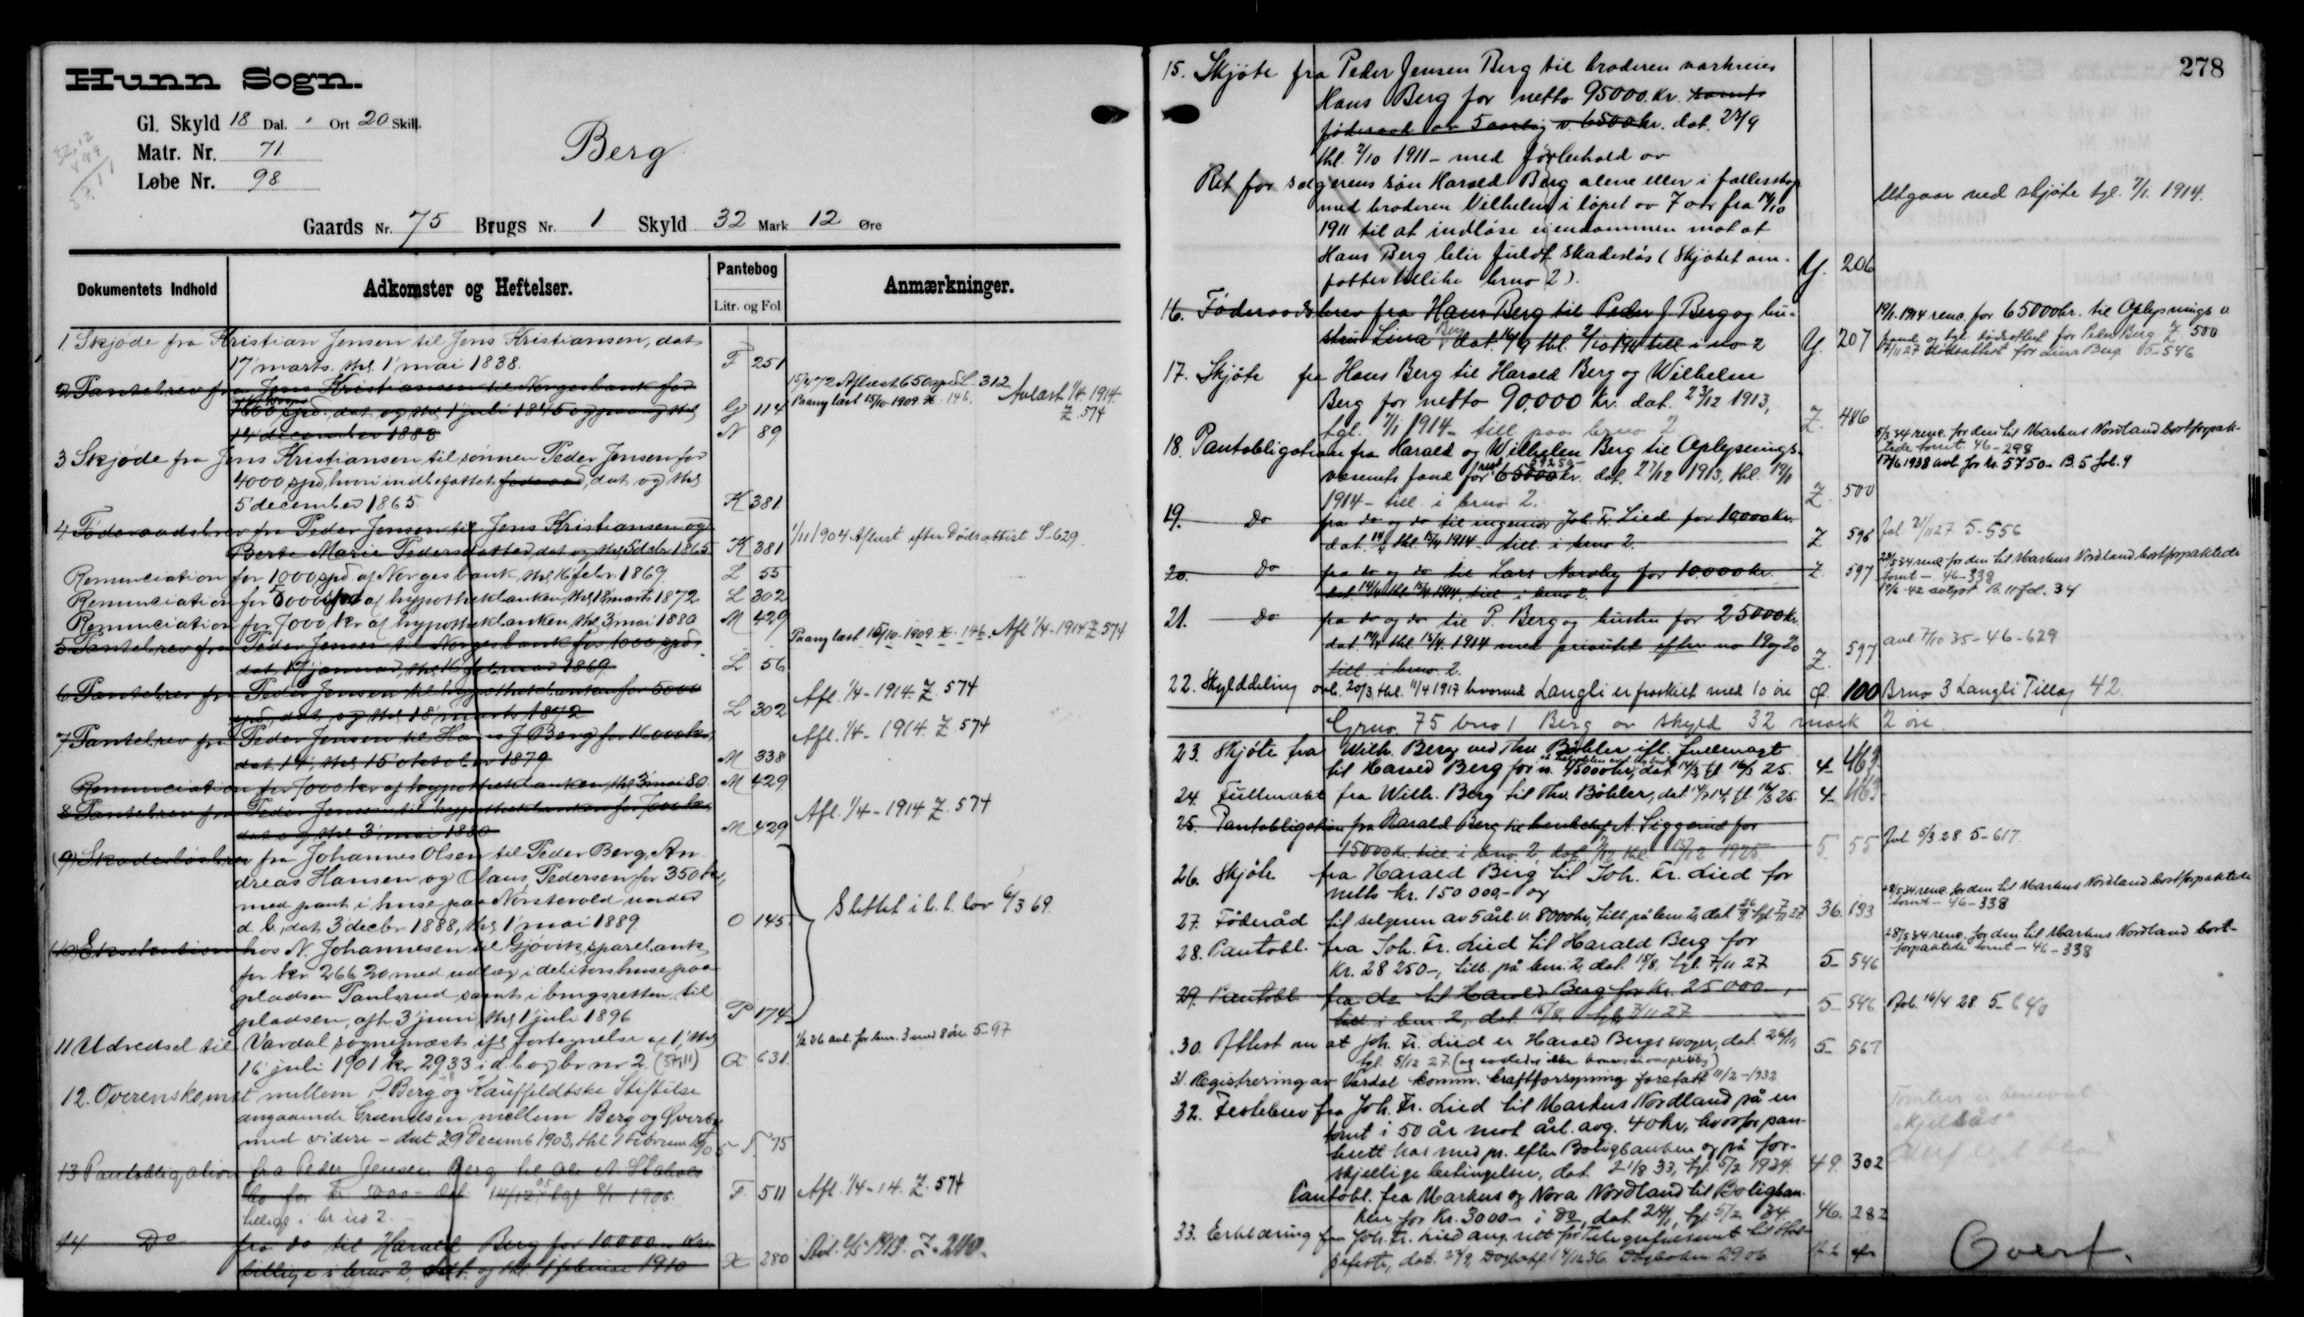 Hunn Sogn.
Gl. Skyld 18 Dal. " Ort 20 Skill.
Matr. Nr. 71
Løbe Nr. 98
32,12
Berg
Gaards Nr. 75 Brugs Nr. 1 Skyld 32 Mark 12 Øre
Dokumentets Indhold
Adkomster og Heftelser.
Pantebog
Litr. og Fol
Anmærkninger.
1 Skjøde fra Kristian Jensen til Jens Kristiansen, dat
17 marts, thl 1 mai 1838. F 251
2 Pantebrev fra Jens Kristiansen til Norges bank for
1600 spd. dat og thl 1 juli 1845 og paany thl G 114
14 december 1888 N 89
15/4 72 Aflæst 650 spd L. 312
Paany læst 15/10-1909 X. 146. Avlæst 1/4 1914.
Z. 574
3 Skjøde fra Jens Kristiansen til sønnen Peder Jensen for
4000 spd, hvori indbefattet føderaad, dat og thl
5 december 1865 K 381
4 Føderaadsbrev fra Peder Jensen til Jens Kristiansen og
Berte Marie Pedersdatter, dat og thl 5 decbr 1865 K 381
1/11 1904 Aflæst efter Dødsattest S. 629.
Renunciation for 1000 spd af Norges bank, thl 16 febr. 1869. L 55
Renunciation for 5000 spd af hypothekbanken, thl 18 marts 1872 L 302
Renunciation for 7000 kr af hypothekbanken, thl 3 mai 1880 M 429
5 Pantebrev fra Peder Jensen til Norges bank for 1000 spd.
dat 19 januar, thl 16 februar 1869 L 56
Paany læst 15/10-1909. X. 146. Afl 1/4-1914 Z 574
6 Pantebrev fra Peder Jensen til hypothekbanken for 5000
spd, dat og thl 18 marts 1872 L 302
Afl. 1/4-1914 Z. 574
7 Pantebrev fra Peder Jensen til Hans J Berg for 16000 kr,
dat 14, thl 15 oktober 1879 M 338
Afl. 1/4-1914 Z 574
Renunciation for 7000 kr af hypothekbanken, thl 3 mai 80 M 429
8 Pantebrev fra Peder Jensen til hypothekbanken for 7000 kr,
dat og thl 3 mai 1880 M 429
Afl. 1/4-1914 Z. 574
(9) Skadesløsbrev fra Johannes Olsen til Peder Berg, An-
dreas Hansen og Olaus Pedersen for 350 kr,
med pant i huse paa Nørstevold under
d. b, dat 3 decbr 1888, thl 1 mai 1889 O 145
Slettet i h. t. lov 6/3 69.
(10) Eksekution hos N. Johannesen til Gjøvik sparebank
for kr 266,20 med udlæg i debitors huse paa
pladsen Paulsrud samt i brugsretten til
pladsen, afh 3 juni, thl 1 juli 1896 P 174
11 Udredsel til Vardal sogneprest ifl. fortegnelse af 1, thl
16 juli 1901 kr 29,33 i d. b og br nr 2. (57,11) Q 631
1/2 26 avl. for brnr. 3 med 8 øre 5-97
12. Overenskomst mellem P. Berg og Kauffeldtske Stiftelse
angaaende Grændsen mellem Berg og Øverby
med videre - dat 29 Decemb 1903, thl 1 Februar 1905 T. 75
13 Pantobligation fra Peder Jensen Berg til
for kr. 5000 - dat 14/12 05 tgl 8/1 1906. T. 511
tillige i br no 2.
Afl. 1/4-14. Z. 574
14 Do fra do til Harald Berg for 10.000 - Kr.
tillige i brno 2, dat. og thl. 1 februar 1910 X 280
278
15. Skjøte fra Peder Jensen Berg til broderen
Hans Berg for netto 95000 kr. samt
føderaad av 5 aarlig v. 6500 kr. dat. 23/9
thl. 2/10 1911 - med forbehold av
Ret for sælgerens søn Harald Berg alene eller i fællesskap
med broderen Vilhelm i løpet av 7 aar fra 14/10
1911 til at indløse eiendommen mot at
Hans Berg blir fuldt skadesløs (Skjøtet om-
fatter tillike brno 2). Y. 206
Utgaar ved skjøte tgl. 7/1 1914.
16. Føderaadsbrev fra Hans Berg til Peder J Berg og hu-
stru Lina Berg dat. 16/9 thl. 2/10 1911 till. i no 2 Y. 207
19/1 1914 renc. for 65000 kr. til Oplysnings v
17/11 27 dødsattest for Lina Berg. 5-546
17. Skjøte fra Hans Berg til Harald Berg og Wilhelm
Berg for netto 90,000 kr. dat. 23/12 1913,
tgl. 7/1 1914 - till paa brno 2 Z. 486
18. Pantobligation fra Harald og Wilhelm Berg til Oplysnings-
væsenets fond for 65000 kr. dat. 27/12 1913, thl. 19/1
1914 - till. i brno 2. Z. 500
5/3 34 renc. for den til Markus Nordland bortforpak-
tede tomt 46-298
17/6 1938 avl. for kr. 5750 - B. 5 fol. 9
19. Do fra do og do til ingeniør Joh. Fr. Lied for 10,000 kr.
dat. 14/4 thl 15/4 1914 - till. i brno 2. Z 596
Avl. 21/11 27 5-556
20. Do fra do og do til Lars Narsby for 10,000 kr.
dat. 14/4 thl 15/4 1914, till i brno 2. Z. 597
28/5 34 renc for den til Markus Nordland bortforpaktede
tomt - 46-338
21. Do fra do og do til P. Berg og hustru for 25000 kr.
dat 14/4 thl 15/4 1914 med prioritet efter no 19 og 20
till. i brno 2. Z. 597
avl 7/10 35 - 46-629
22. Skylddeling avh. 20/3, thl. 11/4 1917 hvorved Langli er fraskilt med 10 øre Q. 100 Brno 3 Langli Tillæg 42.
Grno. 75 bno 1 Berg av skyld 32 mark 2 øre
23. Skjøte fra Wilh. Berg ved Thv. Bøhler ifl. fullmagt
til Harald Berg for kr. 45000 kr, dat 14/3 tgl 16/3 25. 4- 463.
24. Fullmakt fra Wilh. Berg til Thv. Bøhler, dat 14/7 14, tl 16/3 25. 4- 463.
25. Pantobligation fra Harald Berg til A. Siggerud for
15000 kr. till. i brno 2, dat 7/12 thl. 15/12 1925. 5. 55
Avl 5/3 28 5-617.
26. Skjøte fra Harald Berg til Joh. Fr. Lied for
netto kr. 150 000,- og
27. Føderåd til selgeren av 5 årl v. 8000 kr, till, på brn. 2, dat 26/9 tgl 7/11 27 36. 193
28/5 34 renc for den til Markus Nordland bortforpaktede
tomt - 46-338
28. Pantobl. fra Joh. Fr. Lied til Harald Berg for
Kr. 28 250-, till. på brn. 2, dat. 15/8, tgl. 7/11 27 5- 546
28/5 34 renc. for den til Markus Nordland bort-
forpaktede tomt - 46-338
29. Pantobl fra do til Harald Berg for kr. 25 000-,
till. i brn 2, dat 15/8, tgl 7/11 27 5- 546 Avl. 16/4 28 5-640
30. Attest om at Joh. Fr. Lied er Harald Bergs svoger, dat. 26/11,
tgl. 5/12 27 5- 567
31. Registrering av Vardal komm. kraftforsyning foretatt 11/2-1932
32. Festebrev fra Joh. Fr. Lied til Markus Nordland på en
tomt i 50 år mot årl. avg. 40 kr, hvorfor pan-
terett har med pr. efter Boligbanken og på for-
skjellige betingelser, dat. 21/8 33, tgl. 5/2 1934. 49. 302
Pantobl. fra Markus og Nora Nordland til Boligban-
ken for kr. 3000 - i do, dat. 24/1, tgl 5/2 34 46. 282
33. Erklæring fra Joh. Fr. Lied ang. rett for Telegrafvesenet til
Dagboknr 2906
Overf.